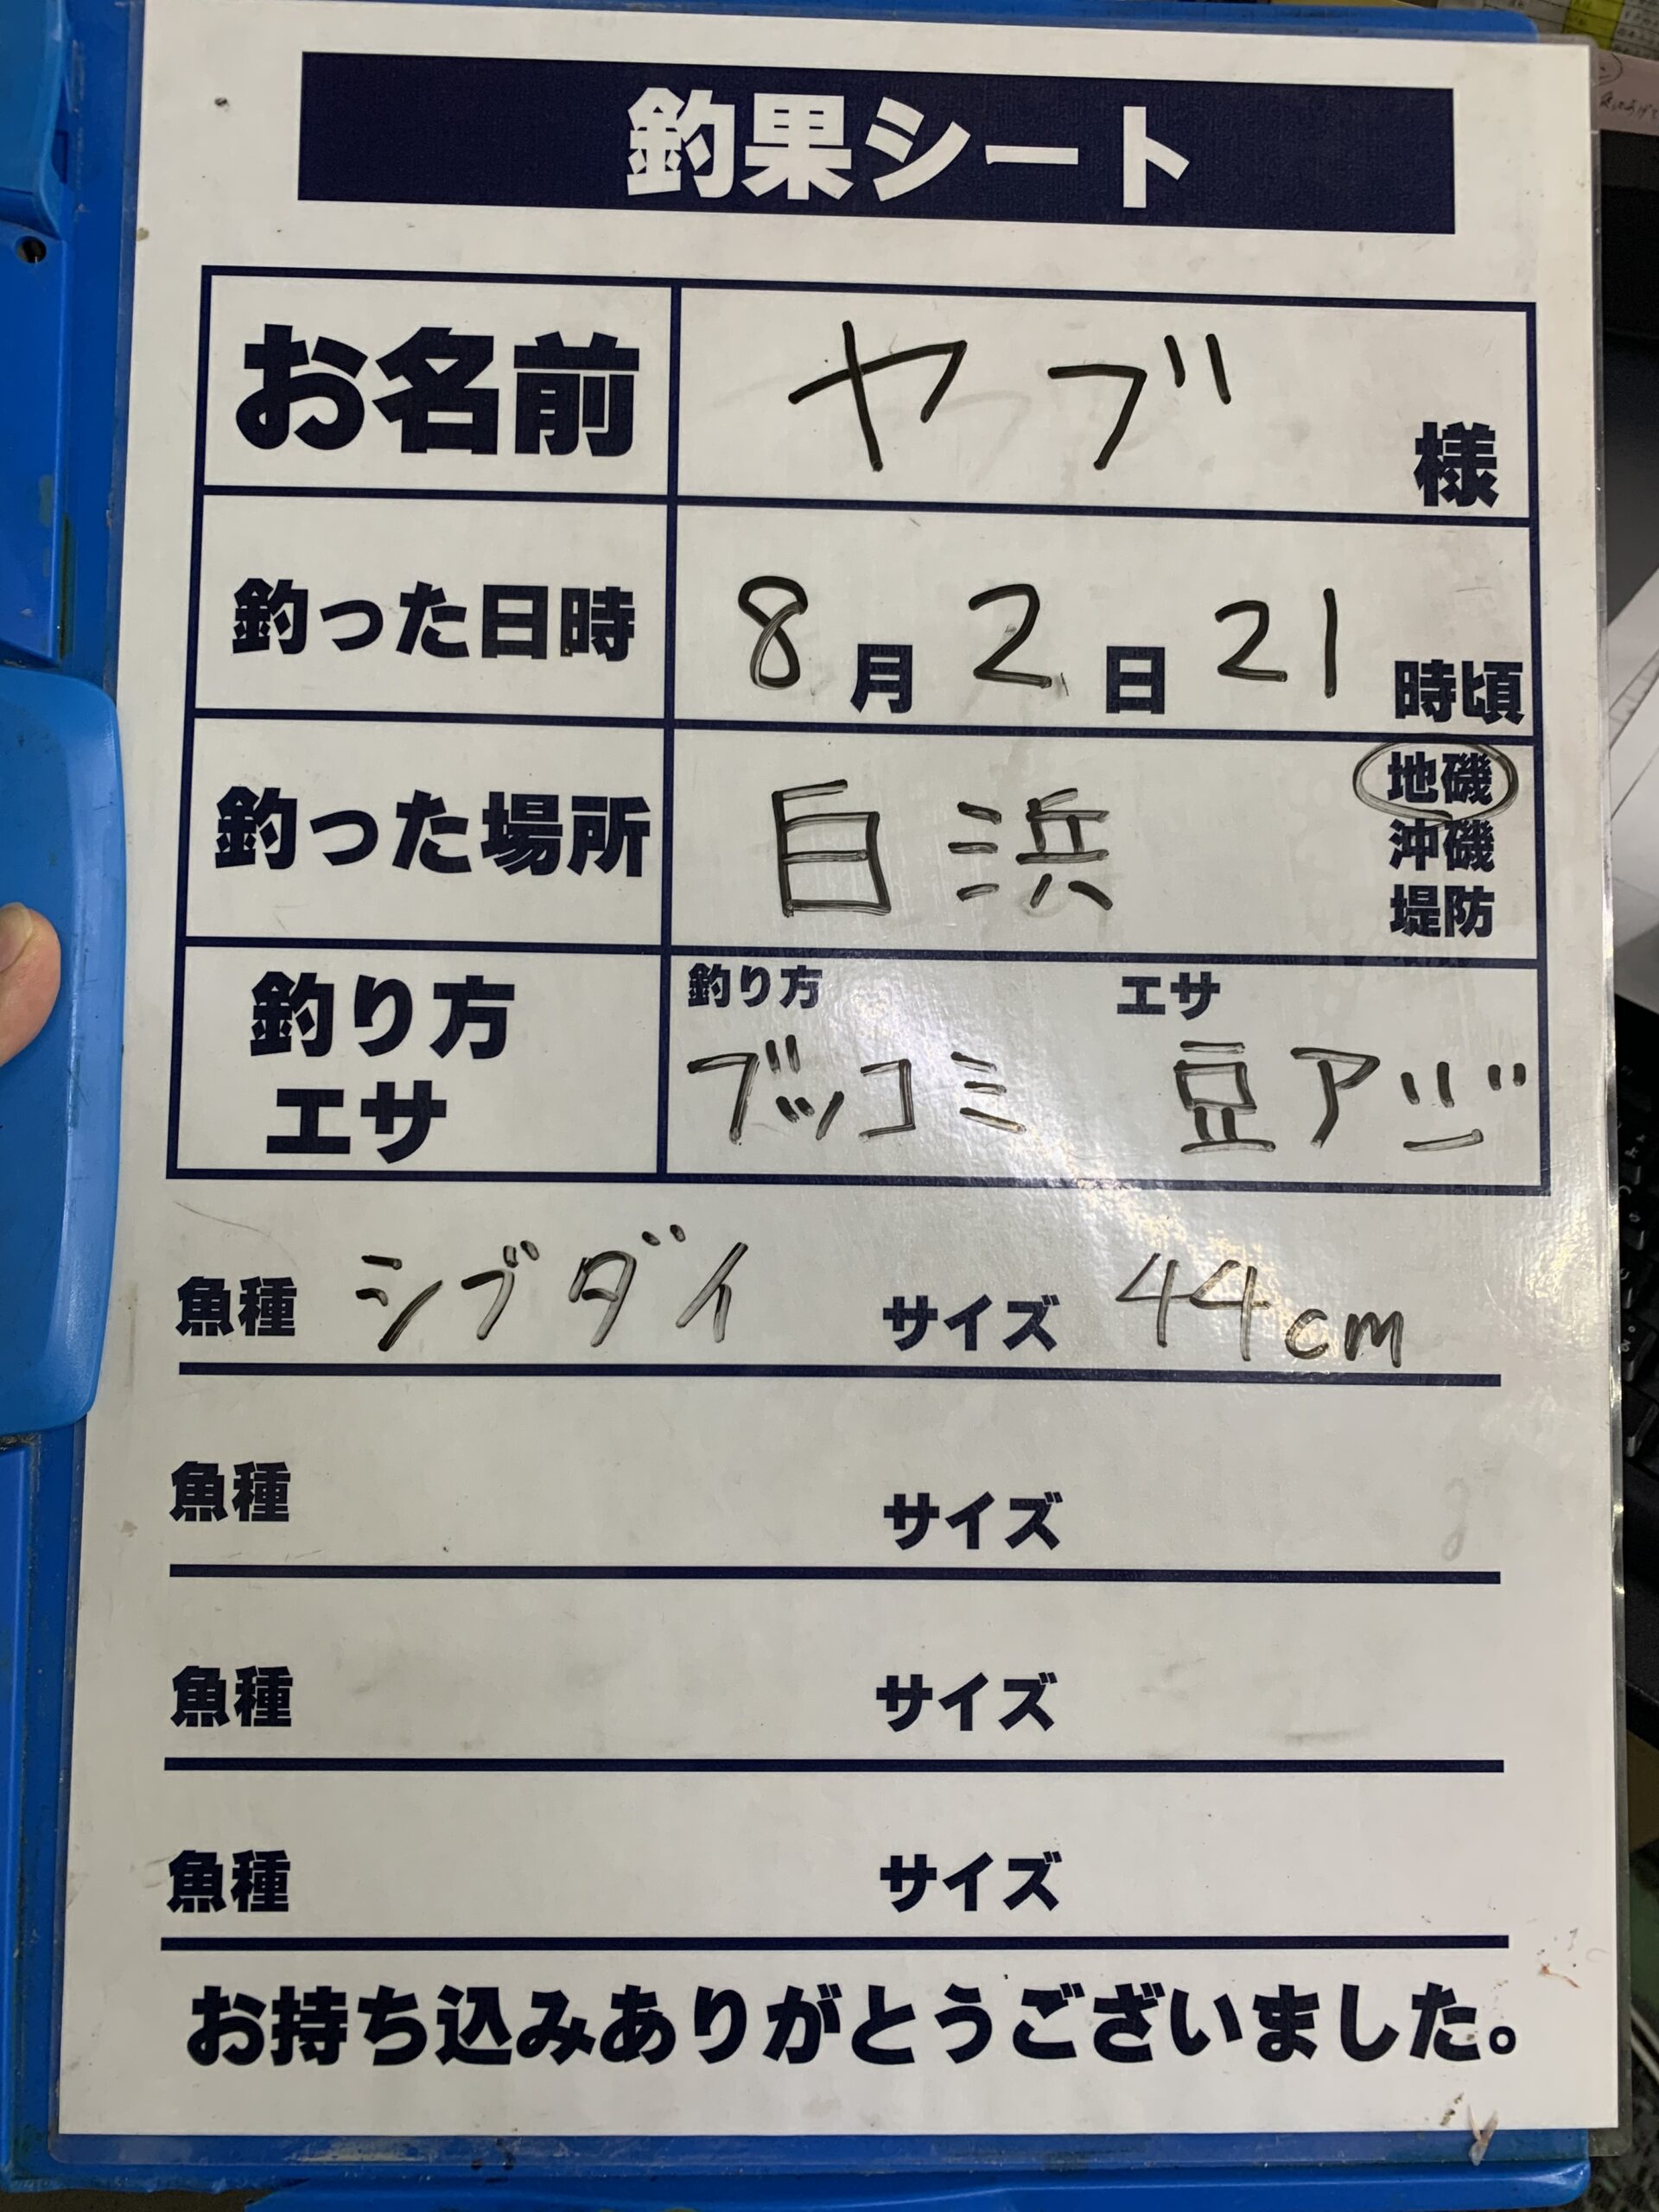 釣果シート
お名前 ヤブ 様
釣った日時 8月2日21時頃
釣った場所 白浜 地磯
沖磯
堤防
釣り方 エサ
釣り方 ブッコミ エサ 豆アジ
魚種 シブダイ サイズ 44cm
魚種 サイズ
魚種 サイズ
魚種 サイズ
お持ち込みありがとうございました。